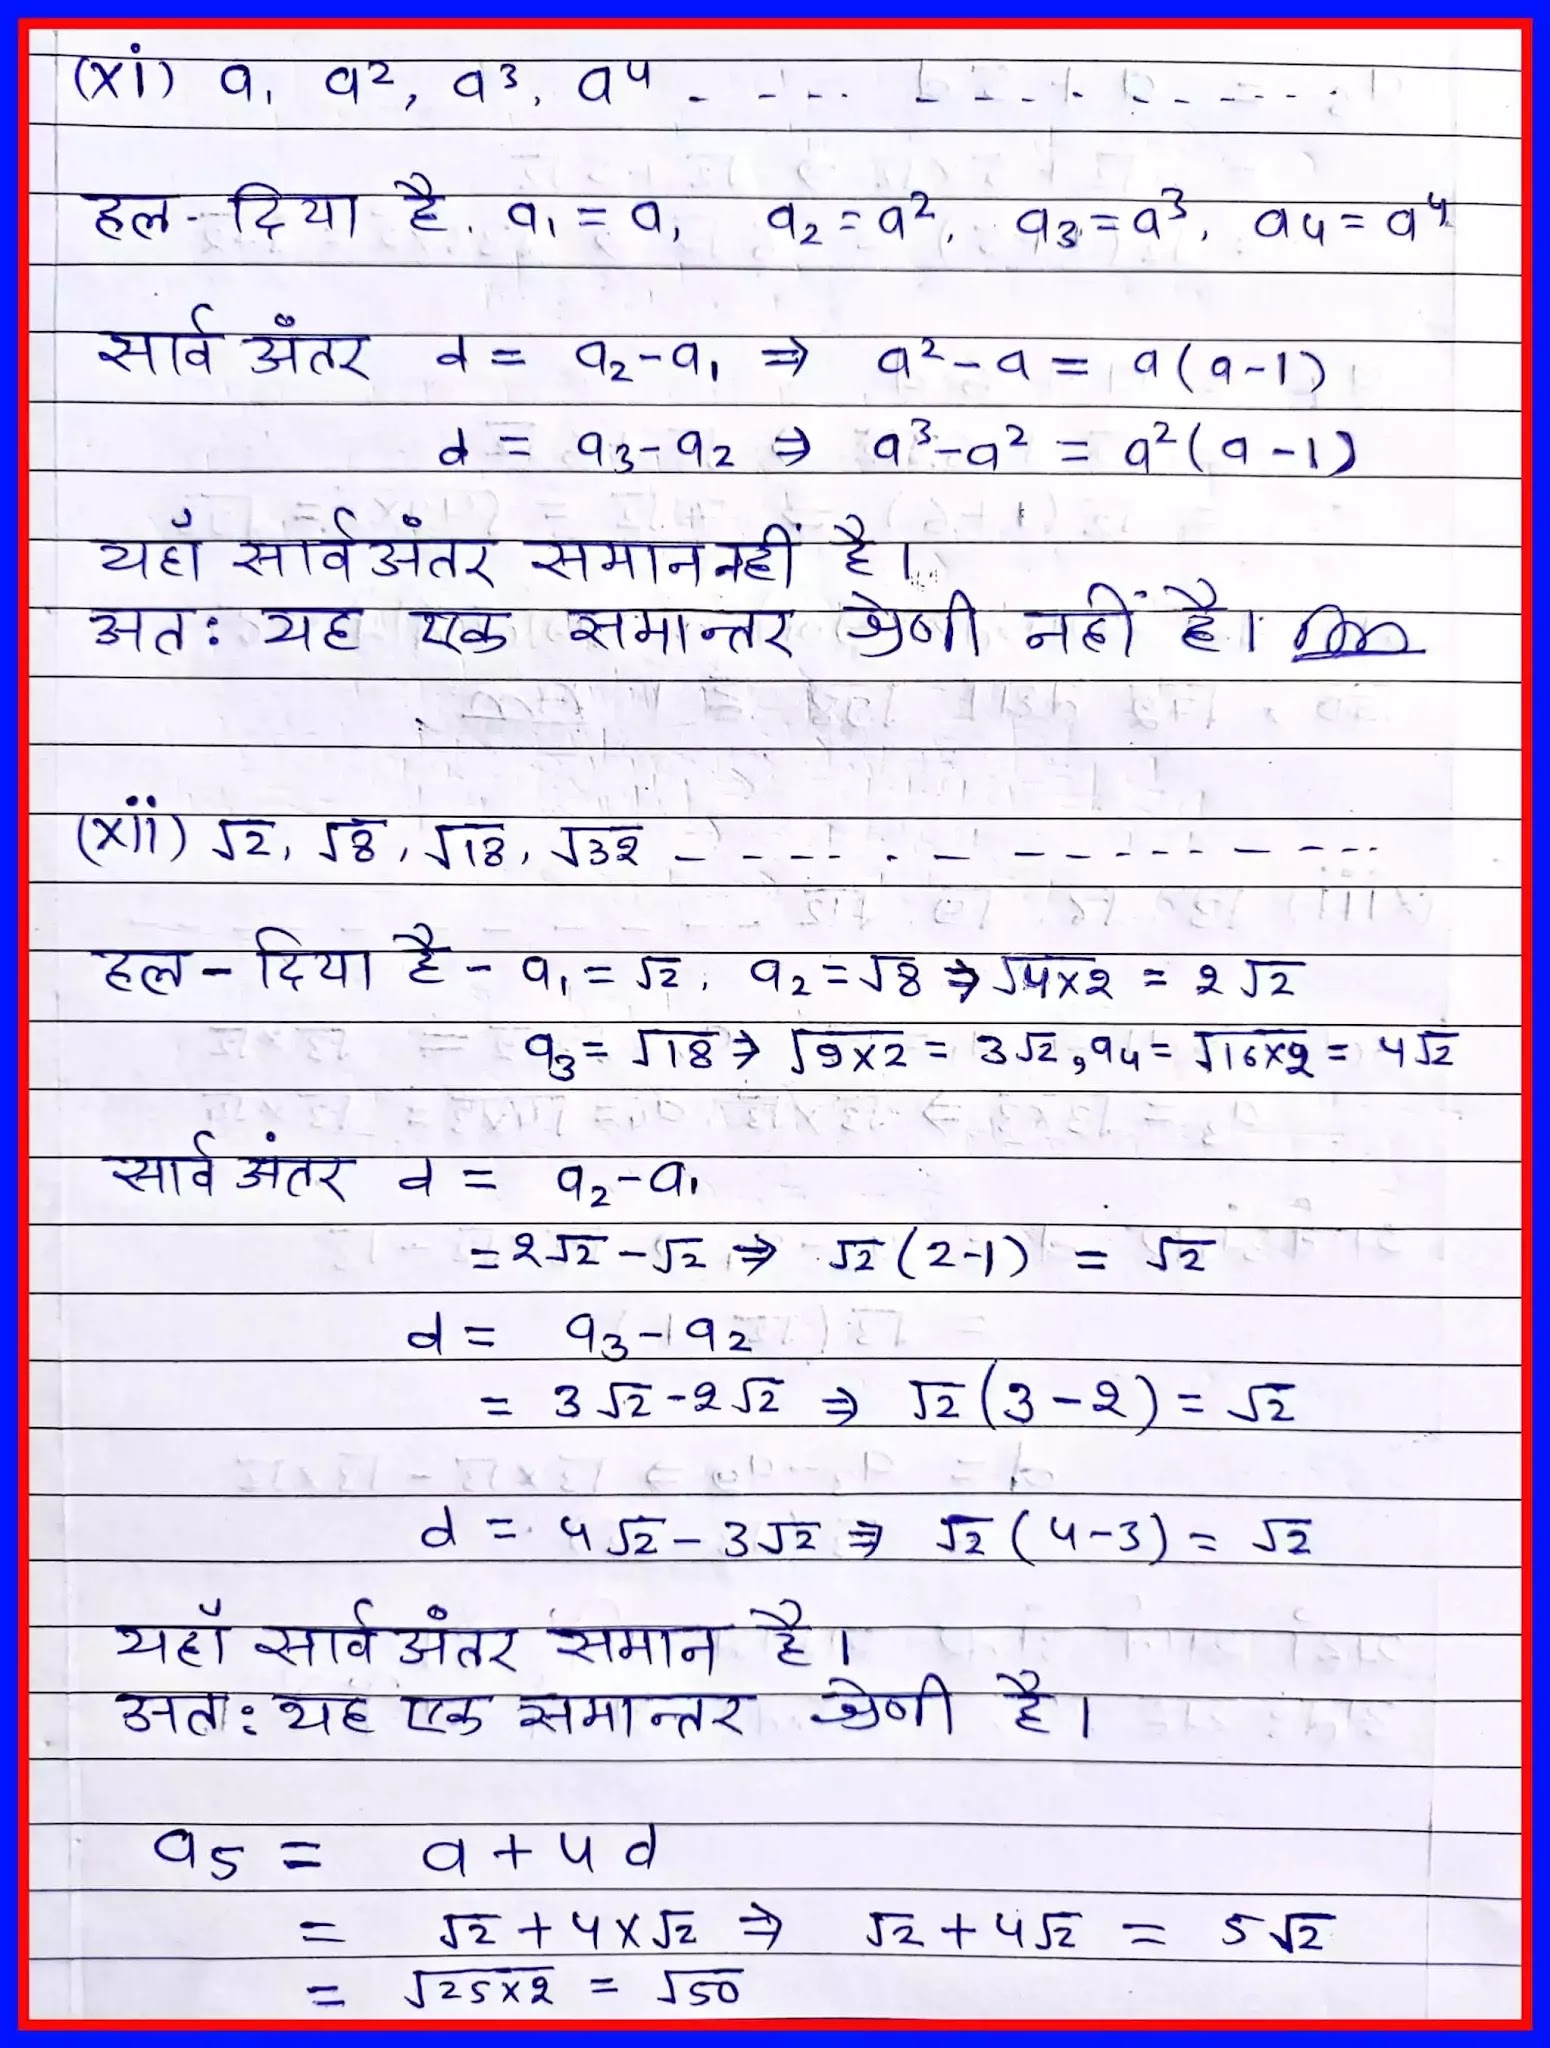 (xi) a, a², a³, a⁴ - - - - - - - - - - - - -
हल - दिया है. a₁ = a, a₂ = a², a₃ = a³, a₄ = a⁴
सार्व अंतर d = a₂ - a₁ ⇒ a² - a = a(a-1)
d = a₃ - a₂ ⇒ a³ - a² = a²(a-1)
यहाँ सार्व अंतर समान नहीं है।
अतः यह एक समान्तर श्रेणी नहीं है।
(xii) √2, √8, √18, √32 - - - - - - - - - - - - - -
हल - दिया है - a₁ = √2, a₂ = √8 ⇒ √4×2 = 2√2
a₃ = √18 ⇒ √9×2 = 3√2, a₄ = √16×2 = 4√2
सार्व अंतर d = a₂ - a₁
= 2√2 - √2 ⇒ √2(2-1) = √2
d = a₃ - a₂
= 3√2 - 2√2 ⇒ √2(3-2) = √2
d = 4√2 - 3√2 ⇒ √2(4-3) = √2
यहाँ सार्व अंतर समान है।
अतः यह एक समान्तर श्रेणी है।
a₅ = a + 4d
= √2 + 4×√2 ⇒ √2 + 4√2 = 5√2
= √25×2 = √50